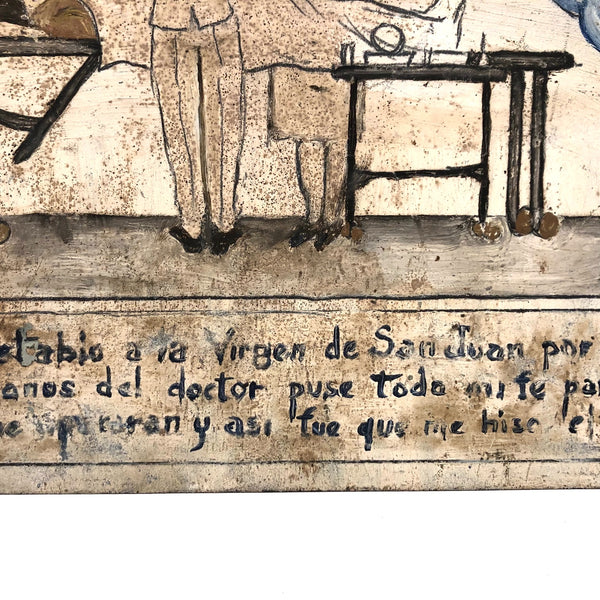 etablo a la Virgen de San Juan por
anos del doctor puse toda mi fe par
operaran y asi fue que me hiso el